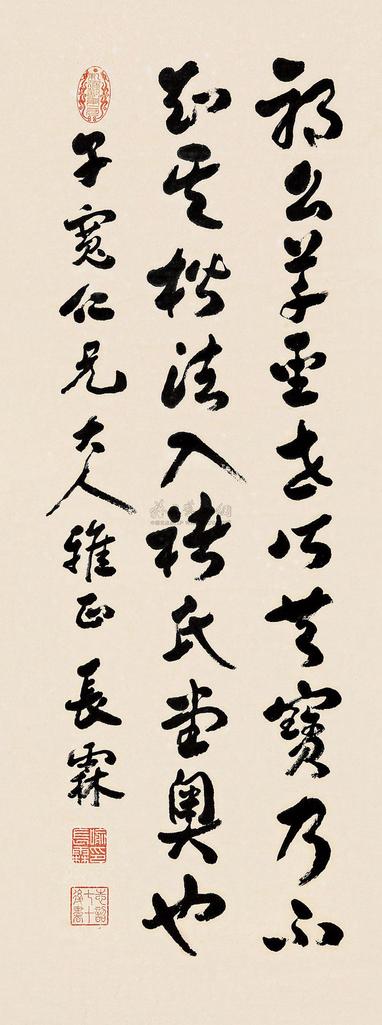 祁公草聖世所共寶乃不
知其楷法入褚氏堂奧也
子寬仁兄大人雅正 長霖